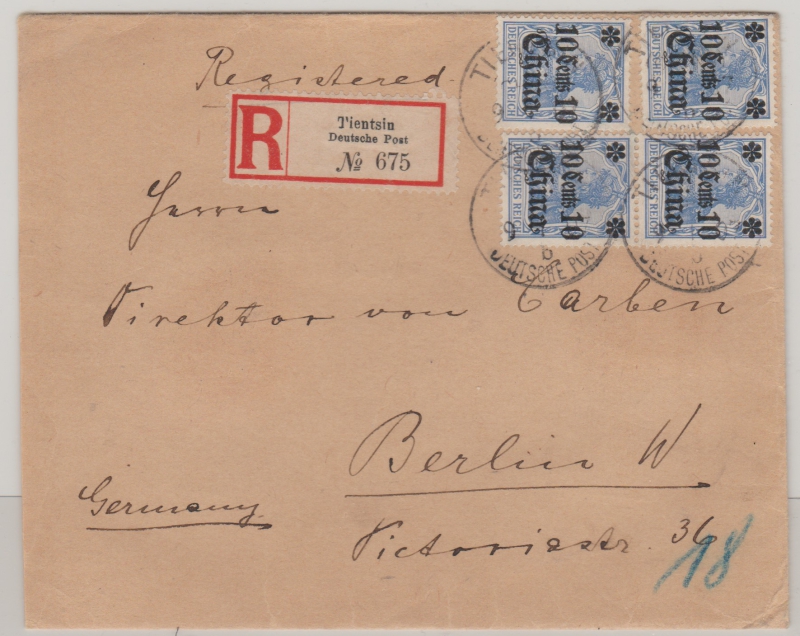 Registered.
R
Tientsin
Deutsche Post
No 675
10 Cents 10
China
DEUTSCHES REICH
10 Cents 10
China
DEUTSCHES REICH
10 Cents 10
China
DEUTSCHES REICH
10 Cents 10
China
DEUTSCHES REICH
DEUTSCHE POST
DEUTSCHE POST
Herrn
Direktor von Carben
Berlin W
Germany
Victoriastr. 36
18